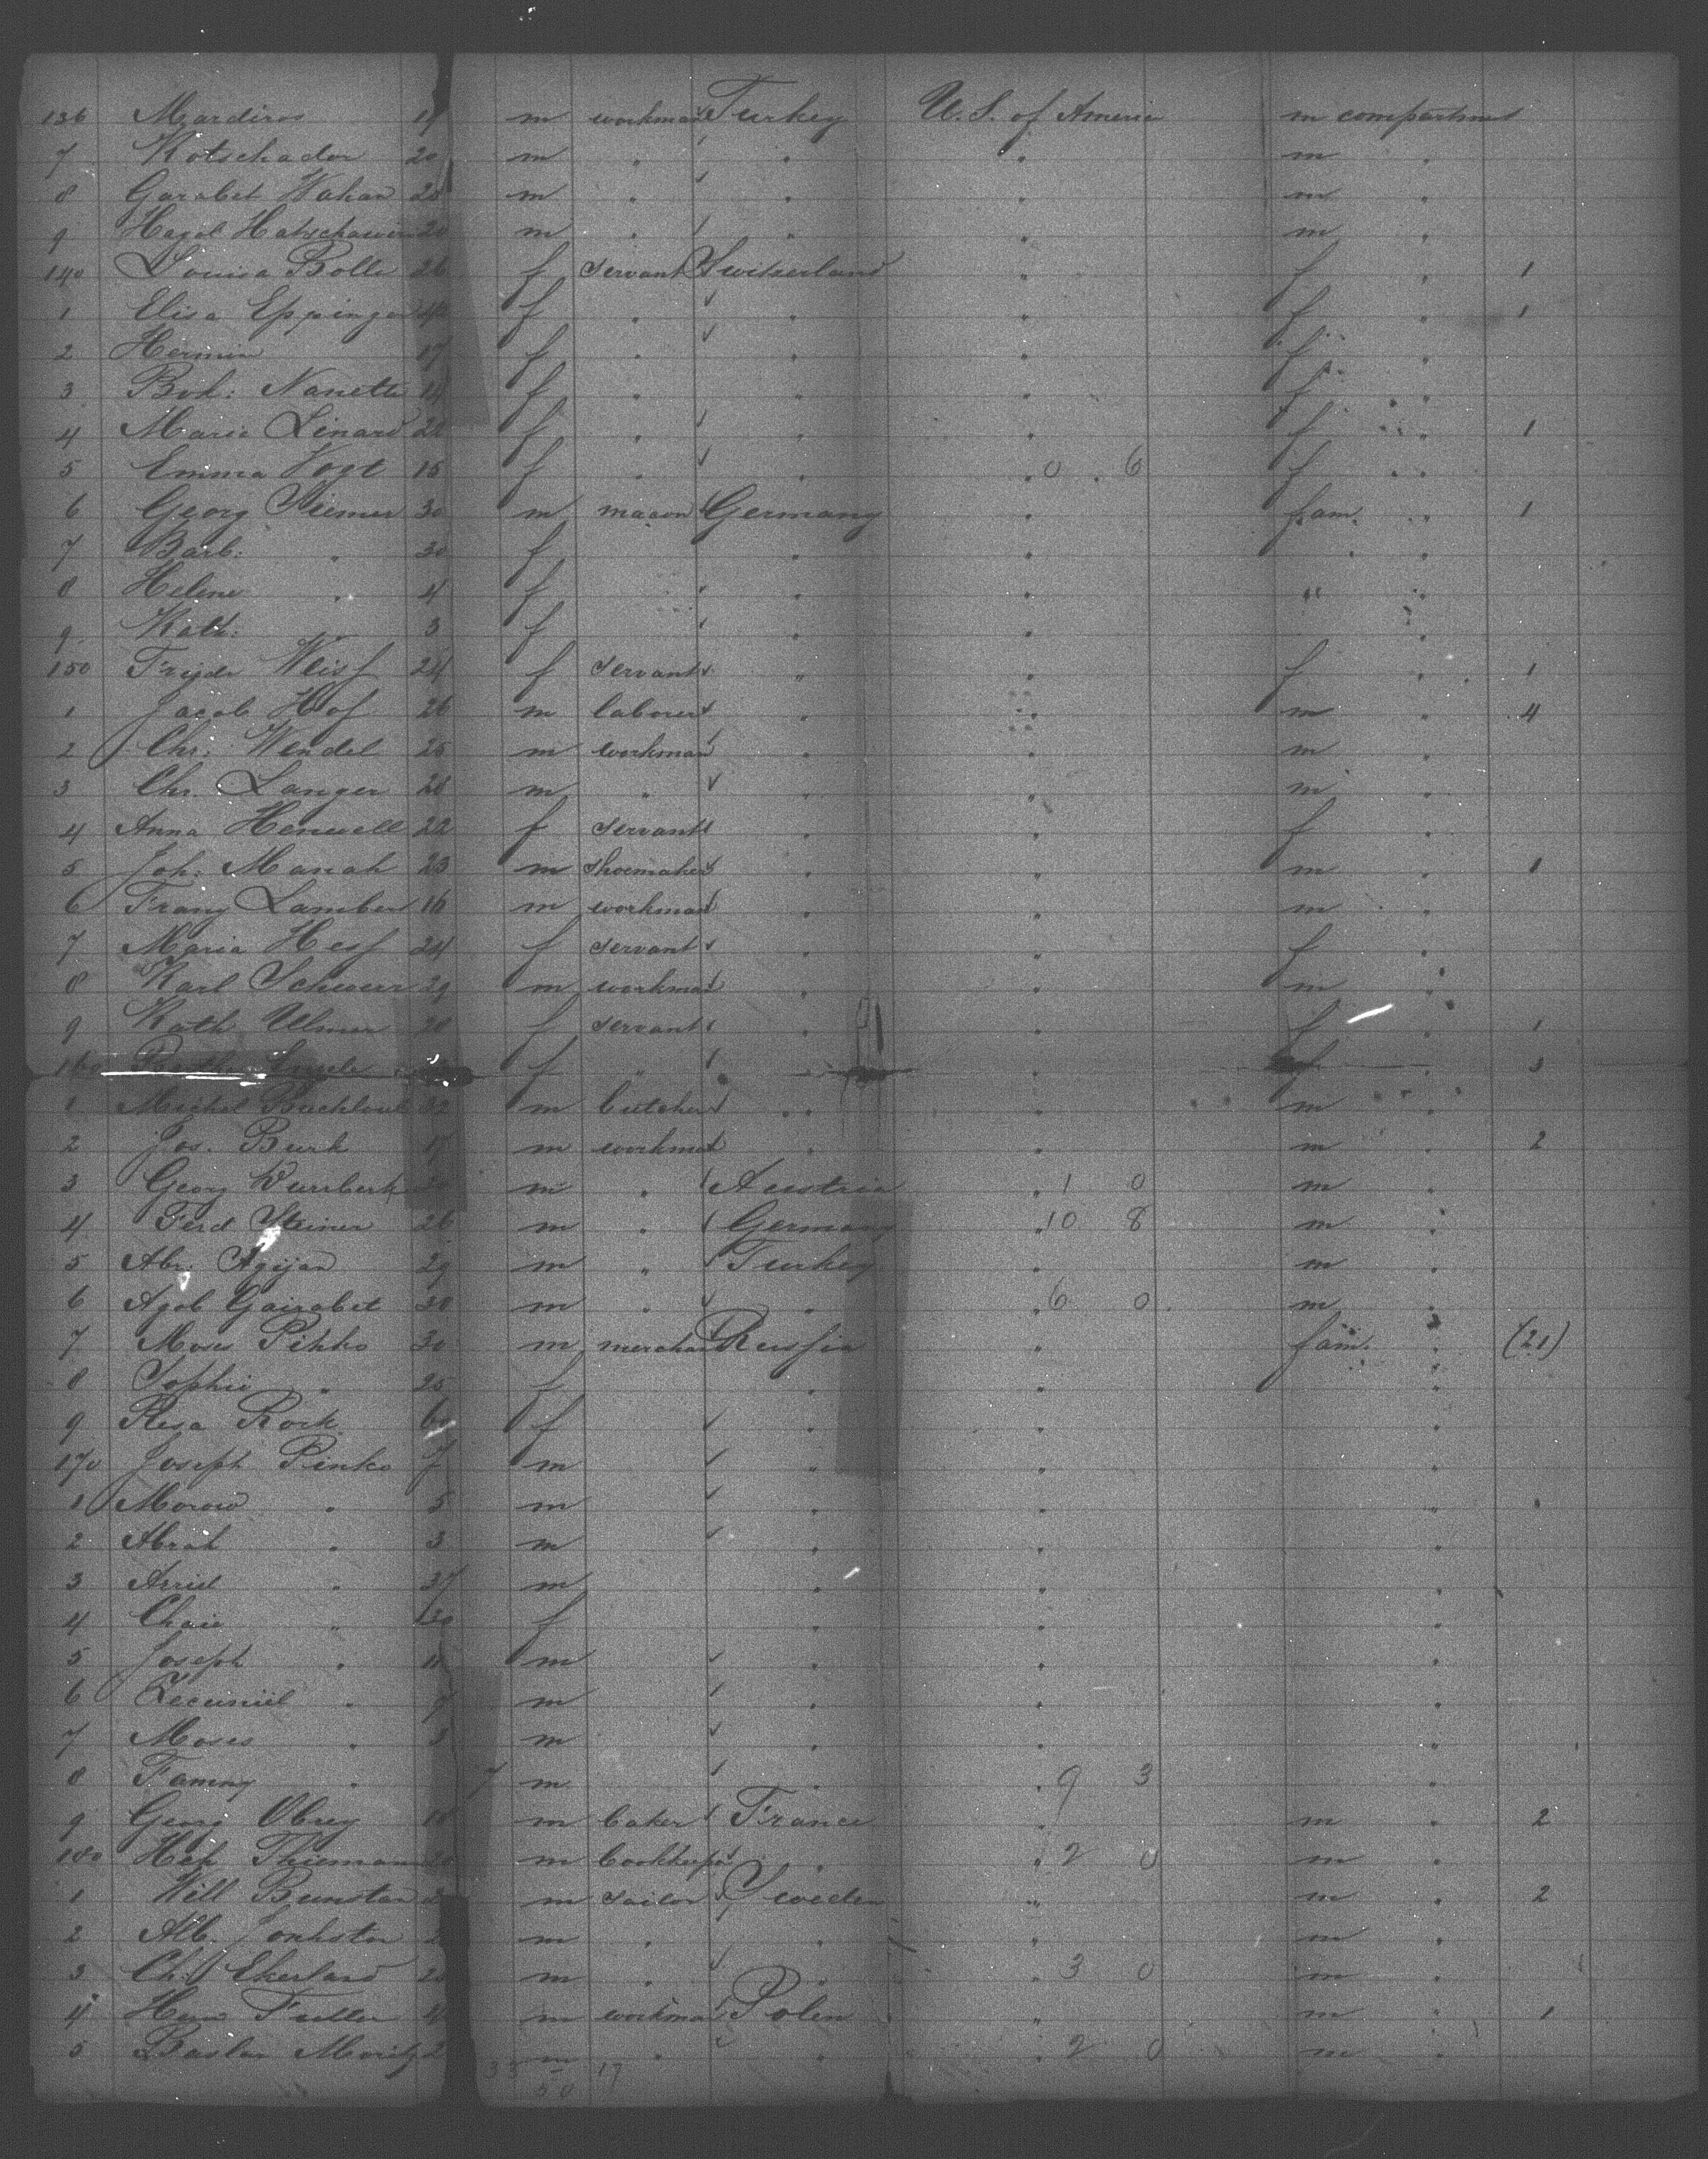 136 Mardiros 19 m workman Turkey U.S. of America m compartment
7 Kotschador 20 m " " " m "
8 Garabet Wahan 20 m " " " m "
9 Hagol 20 m " " " m "
140 Louisa Bolle 26 f servant Switzerland " f " 1
1 Elisa Eppinger f " " " f " 1
2 Hermin 17 f " " " f "
3 Bok: Nanette 14 f " " " f "
4 Marie Linard f " " " f " 1
5 Emma Vogt 15 f " " " 0 6 f "
6 Georg 30 m mason Germany " fam. " 1
7 Barb: " 30 f " " " "
8 Helene " 4 f " " " "
9 Kath: " 3 f " " "
150 Weiss 24 f servant " " f " 1
1 Jacob Hof 26 m laborer " " m " 4
2 Chr: Wendel 25 m workman " " m "
3 Chr. Langer 28 m " " " m "
4 Anna 22 f servant " " f "
5 Joh: 23 m shoemaker " " m " 1
6 Franz Lambert 16 m workman " " m "
7 Maria Hess 24 f servant " " f "
8 Karl 29 m workman " " m "
9 Kath Ulmer 20 f servant " " f " 1
160 f " " f " 3
1 Michel m butcher " " m "
2 Jos. Burk 17 m workman " " m " 2
3 Georg m " Austria " 1 0 m "
4 Ferd Steiner 26 m " Germany " 10 8 m "
5 Abr. Agijan 29 m " Turkey " m "
6 Agob Gairabet 30 m " " " 6 0 m "
7 Moses Pihko 30 m merchant Russia " fam. " (21)
8 Sophie " 25 f " " "
9 Resa Rock 60 f " "
170 Joseph Pinko 7 m " " "
1 " 5 m " "
2 Abrah " 3 m " " "
3 " 37 m " " "
4 Chaie " 30 f " " "
5 Joseph " 11 m " " "
6 " 7 m " " "
7 Moses " 3 m " " "
8 Fanny " 7 m " " 9 3 "
9 Georg 18 m baker France " m " 2
180 m bookkeeper " " 2 0 m "
1 Will m tailor Sweden " m " 2
2 Alb. m " " " m "
3 Ch: Ekerland m " " " 3 0 m "
4 m workman Polen " m " 1
5 Moritz 2 m " " " 2 0 m "
33 50 17